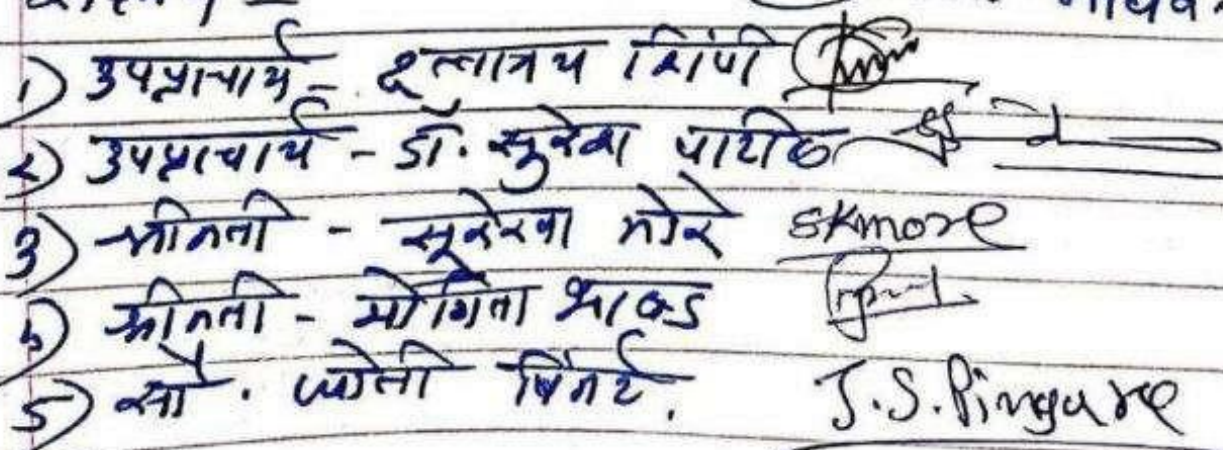 1) उपप्राचार्य - दत्तात्रय शिंपी
2) उपप्राचार्य - डॉ. सुरेश पाटील
3) श्रीमती - सुरेखा मोरे SKmore
4) श्रीमती - योगिता
5) सौ. ज्योती पिंगरे. J.S.Pingare